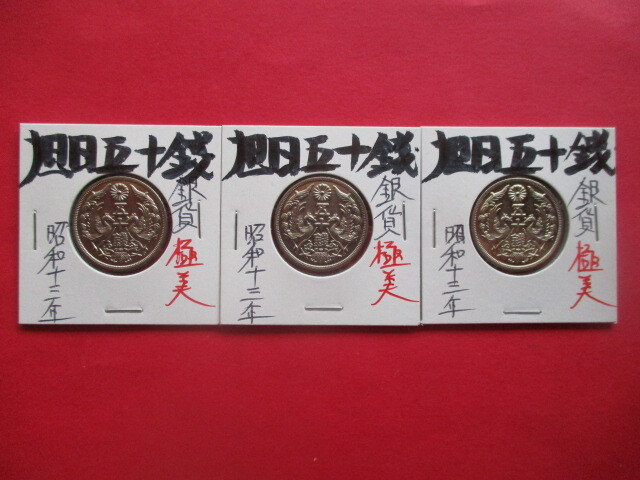 旭日五十銭
銀貨
極美
昭和十三年
旭日五十銭
銀貨
極美
昭和十三年
旭日五十銭
銀貨
極美
昭和十三年